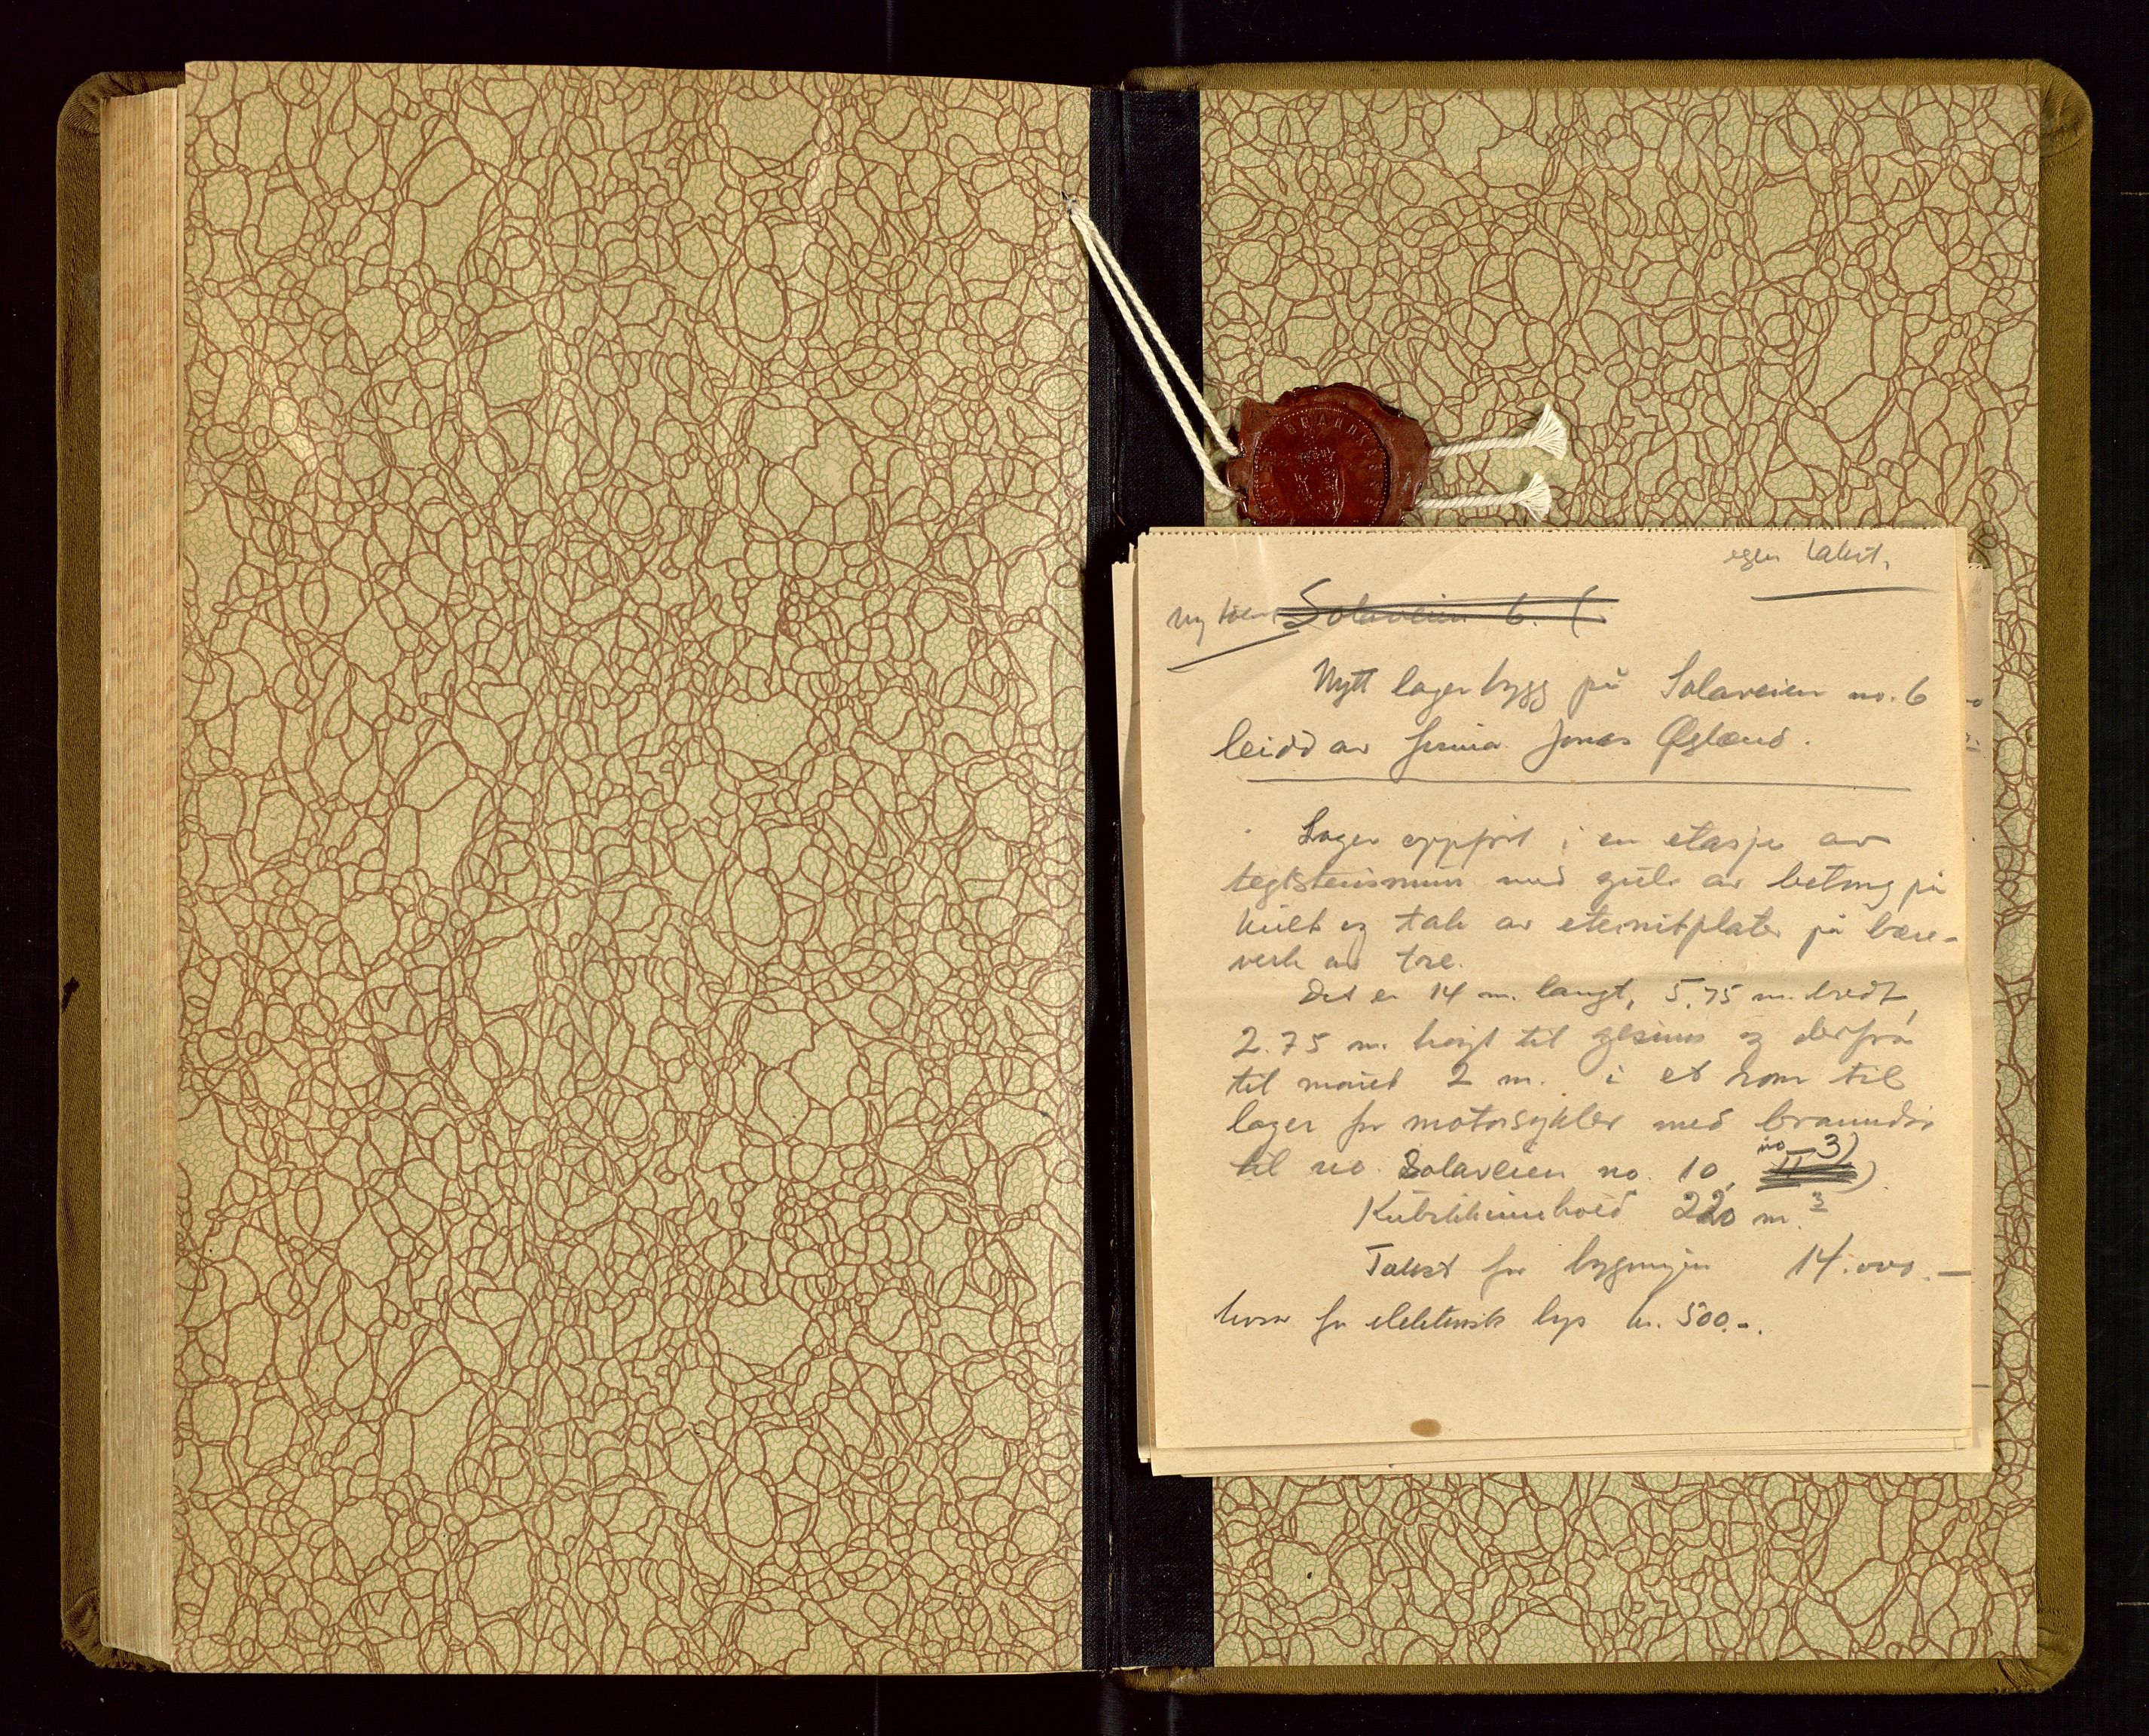 egen takst.
Ny takst Solaveien 6. (
Nytt lagerbygg på Solaveien no. 6
leidd av firma Jonas Øglænd.
Lager oppført i en etasje av
teglsteinsmur med gulv av betong på
kult og tak av eternitplater på bære-
verk av tre.
Det er 14 m. langt, 5.75 m. bredt,
2.75 m. høigt til gesims og derfra
til mønet 2 m. i et rom til
lager for motorsykler med branndør
til Solaveien no. 10, no 3)
Kubikkinnhold 220 m.³
Takst for bygningen 14.000.—
hvorav for elektrisk lys kr. 500.-.